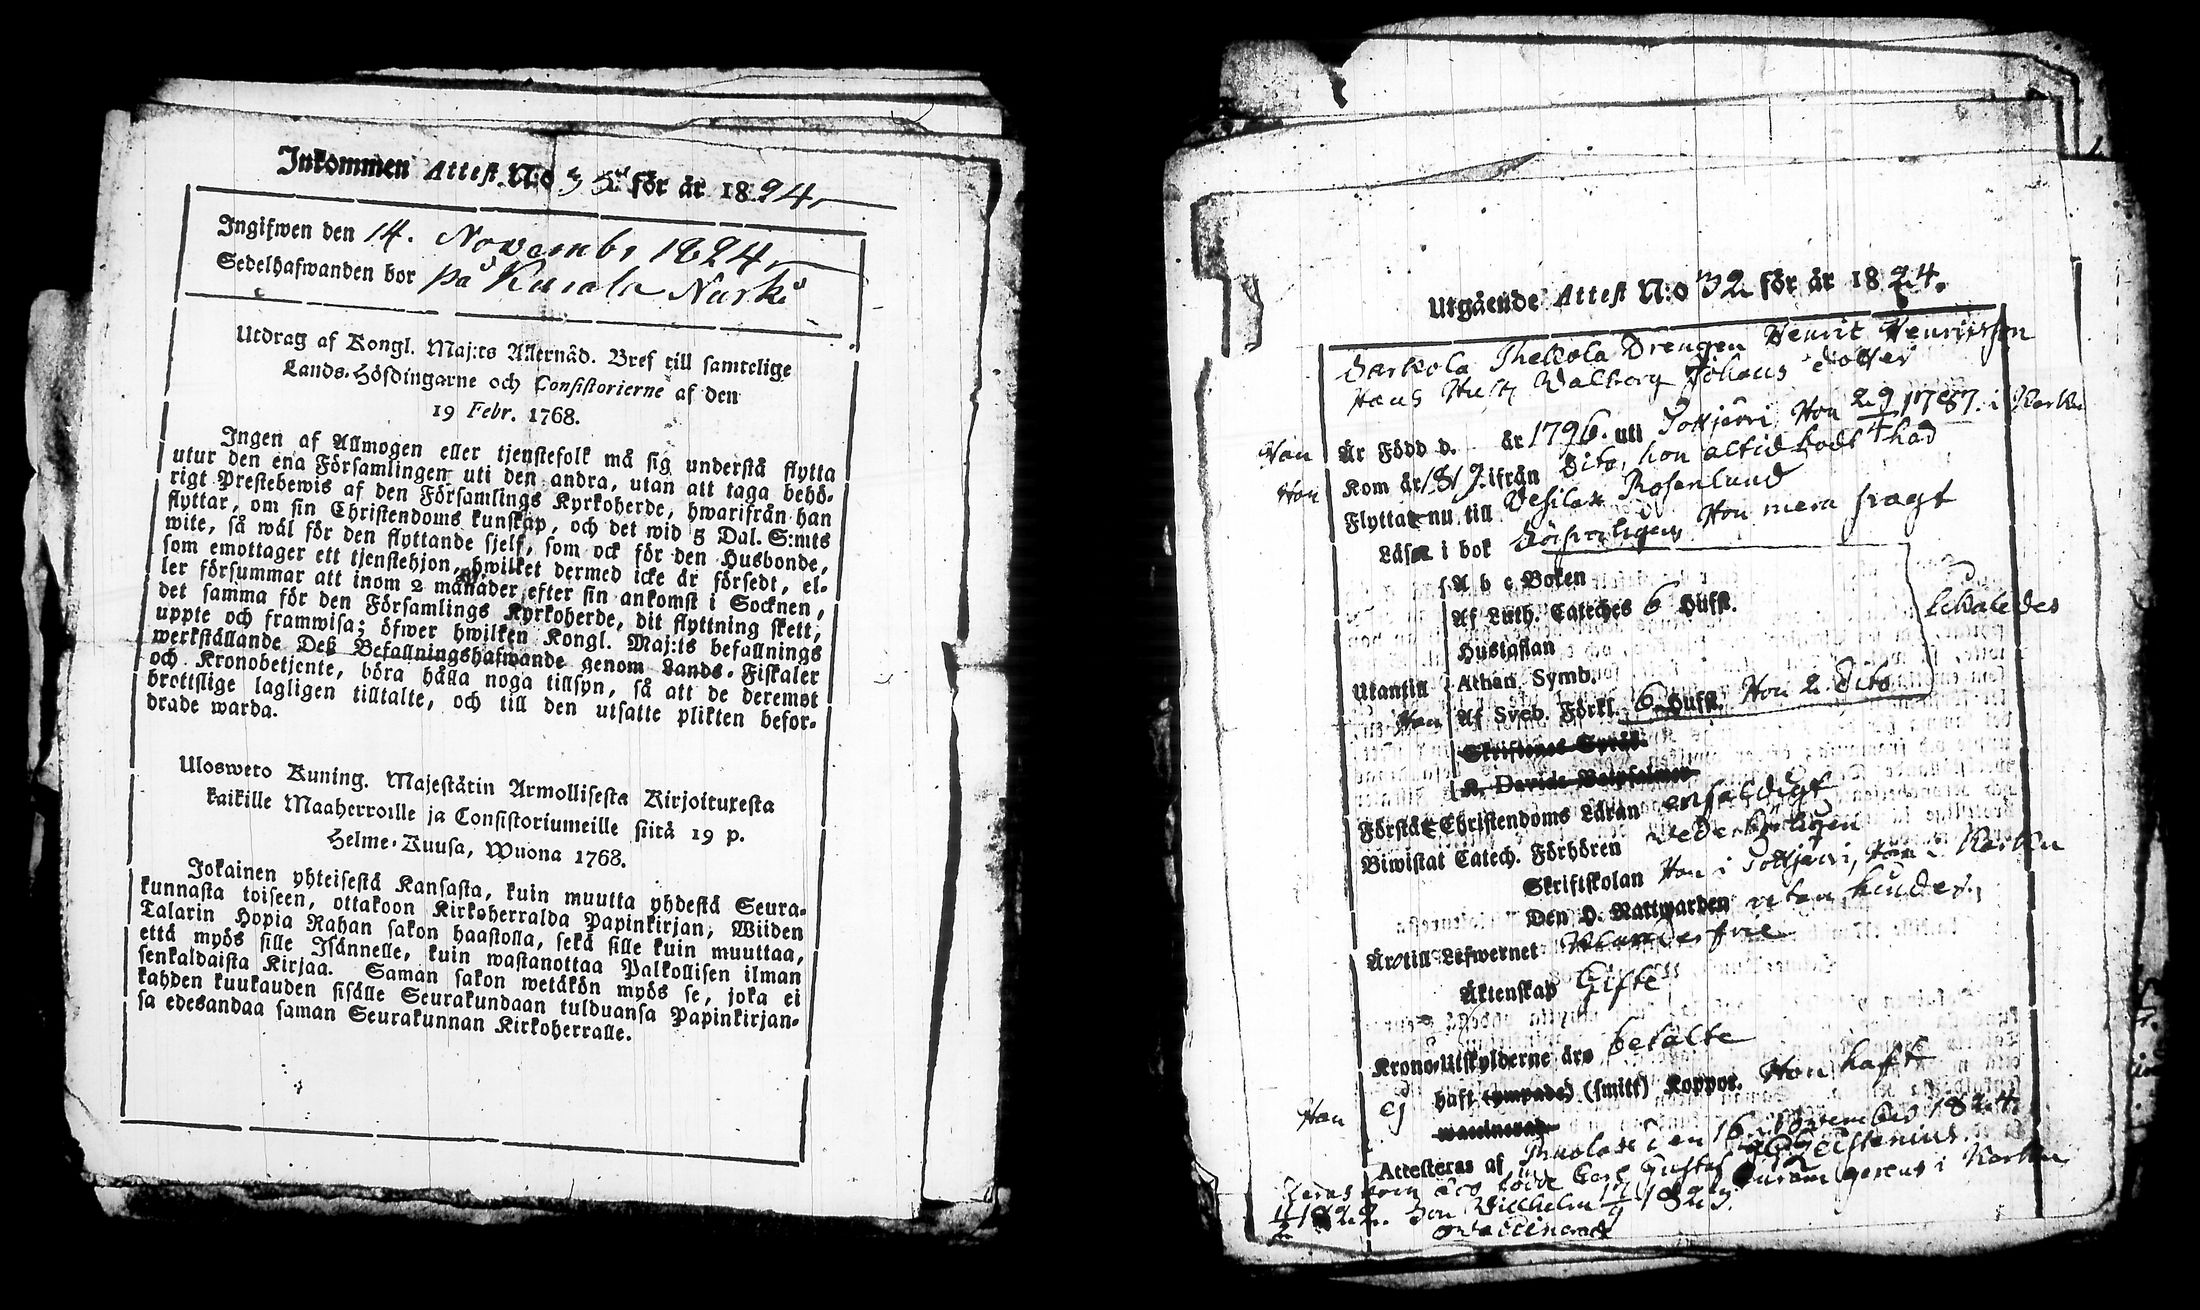 Inkommen Attest N:o 35 för år 1824
Ingifwen den 14. Novembr 1824
Sedelhafwanden bor på Kurala Narki
Utdrag af Kongl. Maj:ts Allernåd. Bref till samtelige
Lands-Höfdingarne och Consistorierne af den
19 Febr. 1768.
Ingen af Allmogen eller tjenstefolk må sig understå flytta
utur den ena Församlingen uti den andra, utan att taga behö-
rigt Prestebewis af den Församlings Kyrkoherde, hwarifrån han
flyttar, om sin Christendoms kunskap, och det wid 5 Dal. S:mts
wite, så wäl för den flyttande sjelf, som ock för den Husbonde,
som emottager ett tjenstehjon, hwilket dermed icke är försedt, el-
ler försummar att inom 2 månader efter sin ankomst i Socknen,
det samma för den Församlings Kyrkoherde, dit flyttning skett,
uppte och framwisa; öfwer hwilken Kongl. Maj:ts befallnings
werkställande Deß Befallningshafwande genom Lands-Fiskaler
och Kronobetjente, böra hålla noga tillsyn, så att de deremot
brottslige lagligen tilltalte, och till den utsatte plikten befor-
drade warda.
Ulosweto Kuning. Majestätin Armollisesta Kirjoituxesta
kaikille Maaherroille ja Consistoriumeille siitä 19 p.
Helme-Kuusa, Wuona 1768.
Jokainen yhteisestä Kansasta, kuin muutta yhdestä Seura-
kunnasta toiseen, ottakoon Kirkoherralda Papinkirjan, Wiiden
Talarin Hopia Rahan sakon haastolla, sekä sille kuin muuttaa,
että myös sille Isännelle, kuin wastanottaa Palkollisen ilman
senkaldaista Kirjaa. Saman sakon wetäkön myös se, joka ei
kahden kuukauden sisälle Seurakundaan tulduansa Papinkirjan-
sa edesandaa saman Seurakunnan Kirkoherralle.
Utgående Attest N:o 32 för år 1824.
Drengen Henric Henricsson
Hans Hust. Walborg Johans dotter
Han Är Född d. år 1796. uti Hon 29/4 1787. i Karku
Hon Kom år ifrån dito, hon altid bodt här
Flyttar nu till Vesilax Rosenlund
Läser i bok Hon mera svagt
A b c Boken
Af Luth. Cateches 6 Hufst.
Hustaflan
Utantill Athan. Symb.
Han Af Sveb. Förkl. 6 Hufst. Hon 2 dito
Skriftenes Språk.
K. Davids Botpsalmer
Förstår Christendoms Läran enfaldigt
Biwistat Catech. Förhören wederbörligen
Skriftskolan Han i Hon i Karku
Den H. Nattwarden utan hinder
Äro till Lefwernet
Äktenskap Gifte
Krono-Utskylderne äro betalte
Han ej haft (ympade) (smitt) Koppor. Hon haft
waccinerad
Attesteras af den 16 November 1824
Carl Gustaf i Karku
1822. Wilhelm 1823.